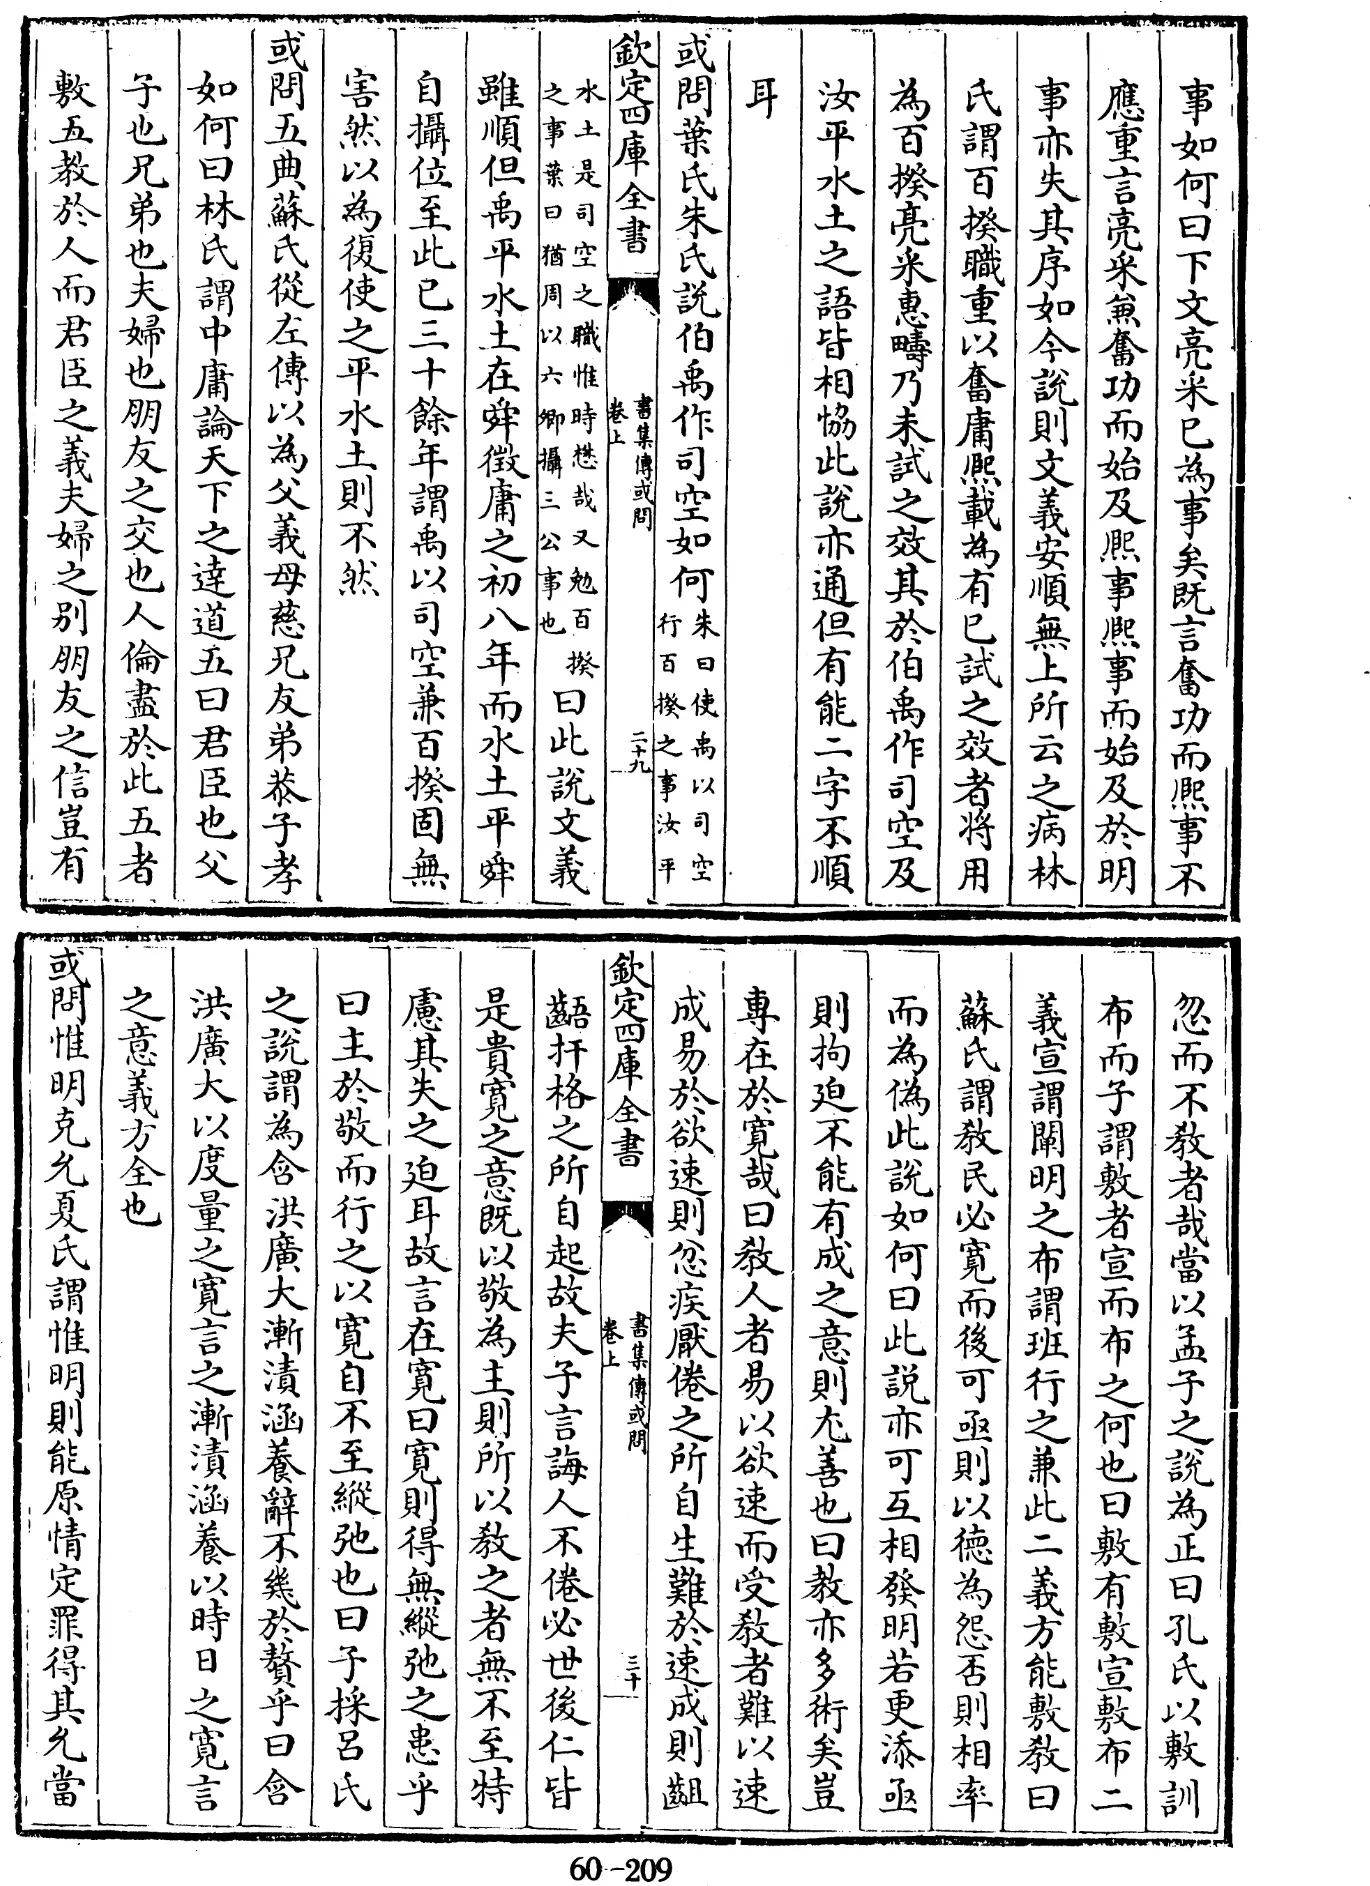 事如何曰下文亮采已為事矣既言奮功而熈事不
應重言亮采兼奮功而始及熈事熈事而始及於明
事亦失其序如今說則文義安順無上所云之病林
氏謂百揆職重以奮庸熈載為有已試之效者將用
為百揆亮采惠疇乃未試之效其於伯禹作司空及
汝平水土之語皆相恊此說亦通但有能二字不順
耳
或問葉氏朱氏說伯禹作司空如何朱曰使禹以司空
行百揆之事汝平
欽定四庫全書
書集傳或問
卷上
二十九
水土是司空之職惟時懋哉又勉百揆
之事葉曰猶周以六卿攝三公事也
曰此説文義
雖順但禹平水土在舜徵庸之初八年而水土平舜
自攝位至此已三十餘年謂禹以司空兼百揆固無
害然以為復使之平水土則不然
或問五典蘇氏從左傳以為父義母慈兄友弟恭子孝
如何曰林氏謂中庸論天下之逹道五曰君臣也父
子也兄弟也夫婦也朋友之交也人倫盡於此五者
敷五教於人而君臣之義夫婦之别朋友之信豈有
忽而不教者哉當以孟子之說為正曰孔氏以敷訓
布而子謂敷者宣而布之何也曰敷有敷宣敷布二
義宣謂闡明之布謂班行之兼此二義方能敷教曰
蘇氏謂教民必寛而後可亟則以德為怨否則相率
而為偽此說如何曰此説亦可互相發明若更添亟
則拘迫不能有成之意則尤善也曰教亦多術矣豈
專在於寛哉曰教人者易以欲速而受教者難以速
成易於欲速則忿疾厭倦之所自生難於速成則齟
欽定四庫全書
書集傳或問
卷上
三十
齬扞格之所自起故夫子言誨人不倦必世後仁皆
是貴寛之意既以敬為主則所以教之者無不至特
慮其失之迫耳故言在寛曰寛則得無縱弛之患乎
曰主於敬而行之以寛自不至縱弛也曰子採呂氏
之說謂為含洪廣大漸漬涵養辭不幾於贅乎曰含
洪廣大以度量之寛言之漸漬涵養以時日之寛言
之意義方全也
或問惟明克允夏氏謂惟明則能原情定罪得其允當
60-209